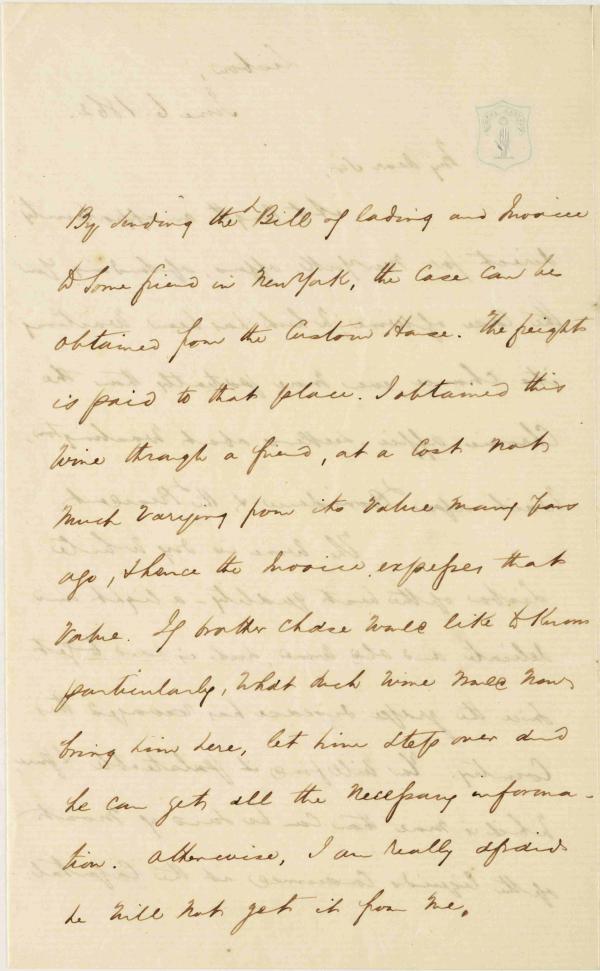 By sending the Bill of lading and Invoice
to some friend in New York, the Case can be
obtained from the Custom House. The freight
is paid to that place. I obtained this
wine through a friend, at a cost not
much varying from its value many years
ago, & hence the Invoice expresses that
value. If brother Chase would like to know
particularly, what such wine would now
bring him here, let him step over and
he can get all the necessary informa-
tion. Otherwise, I am really afraid
he will not get it from me.